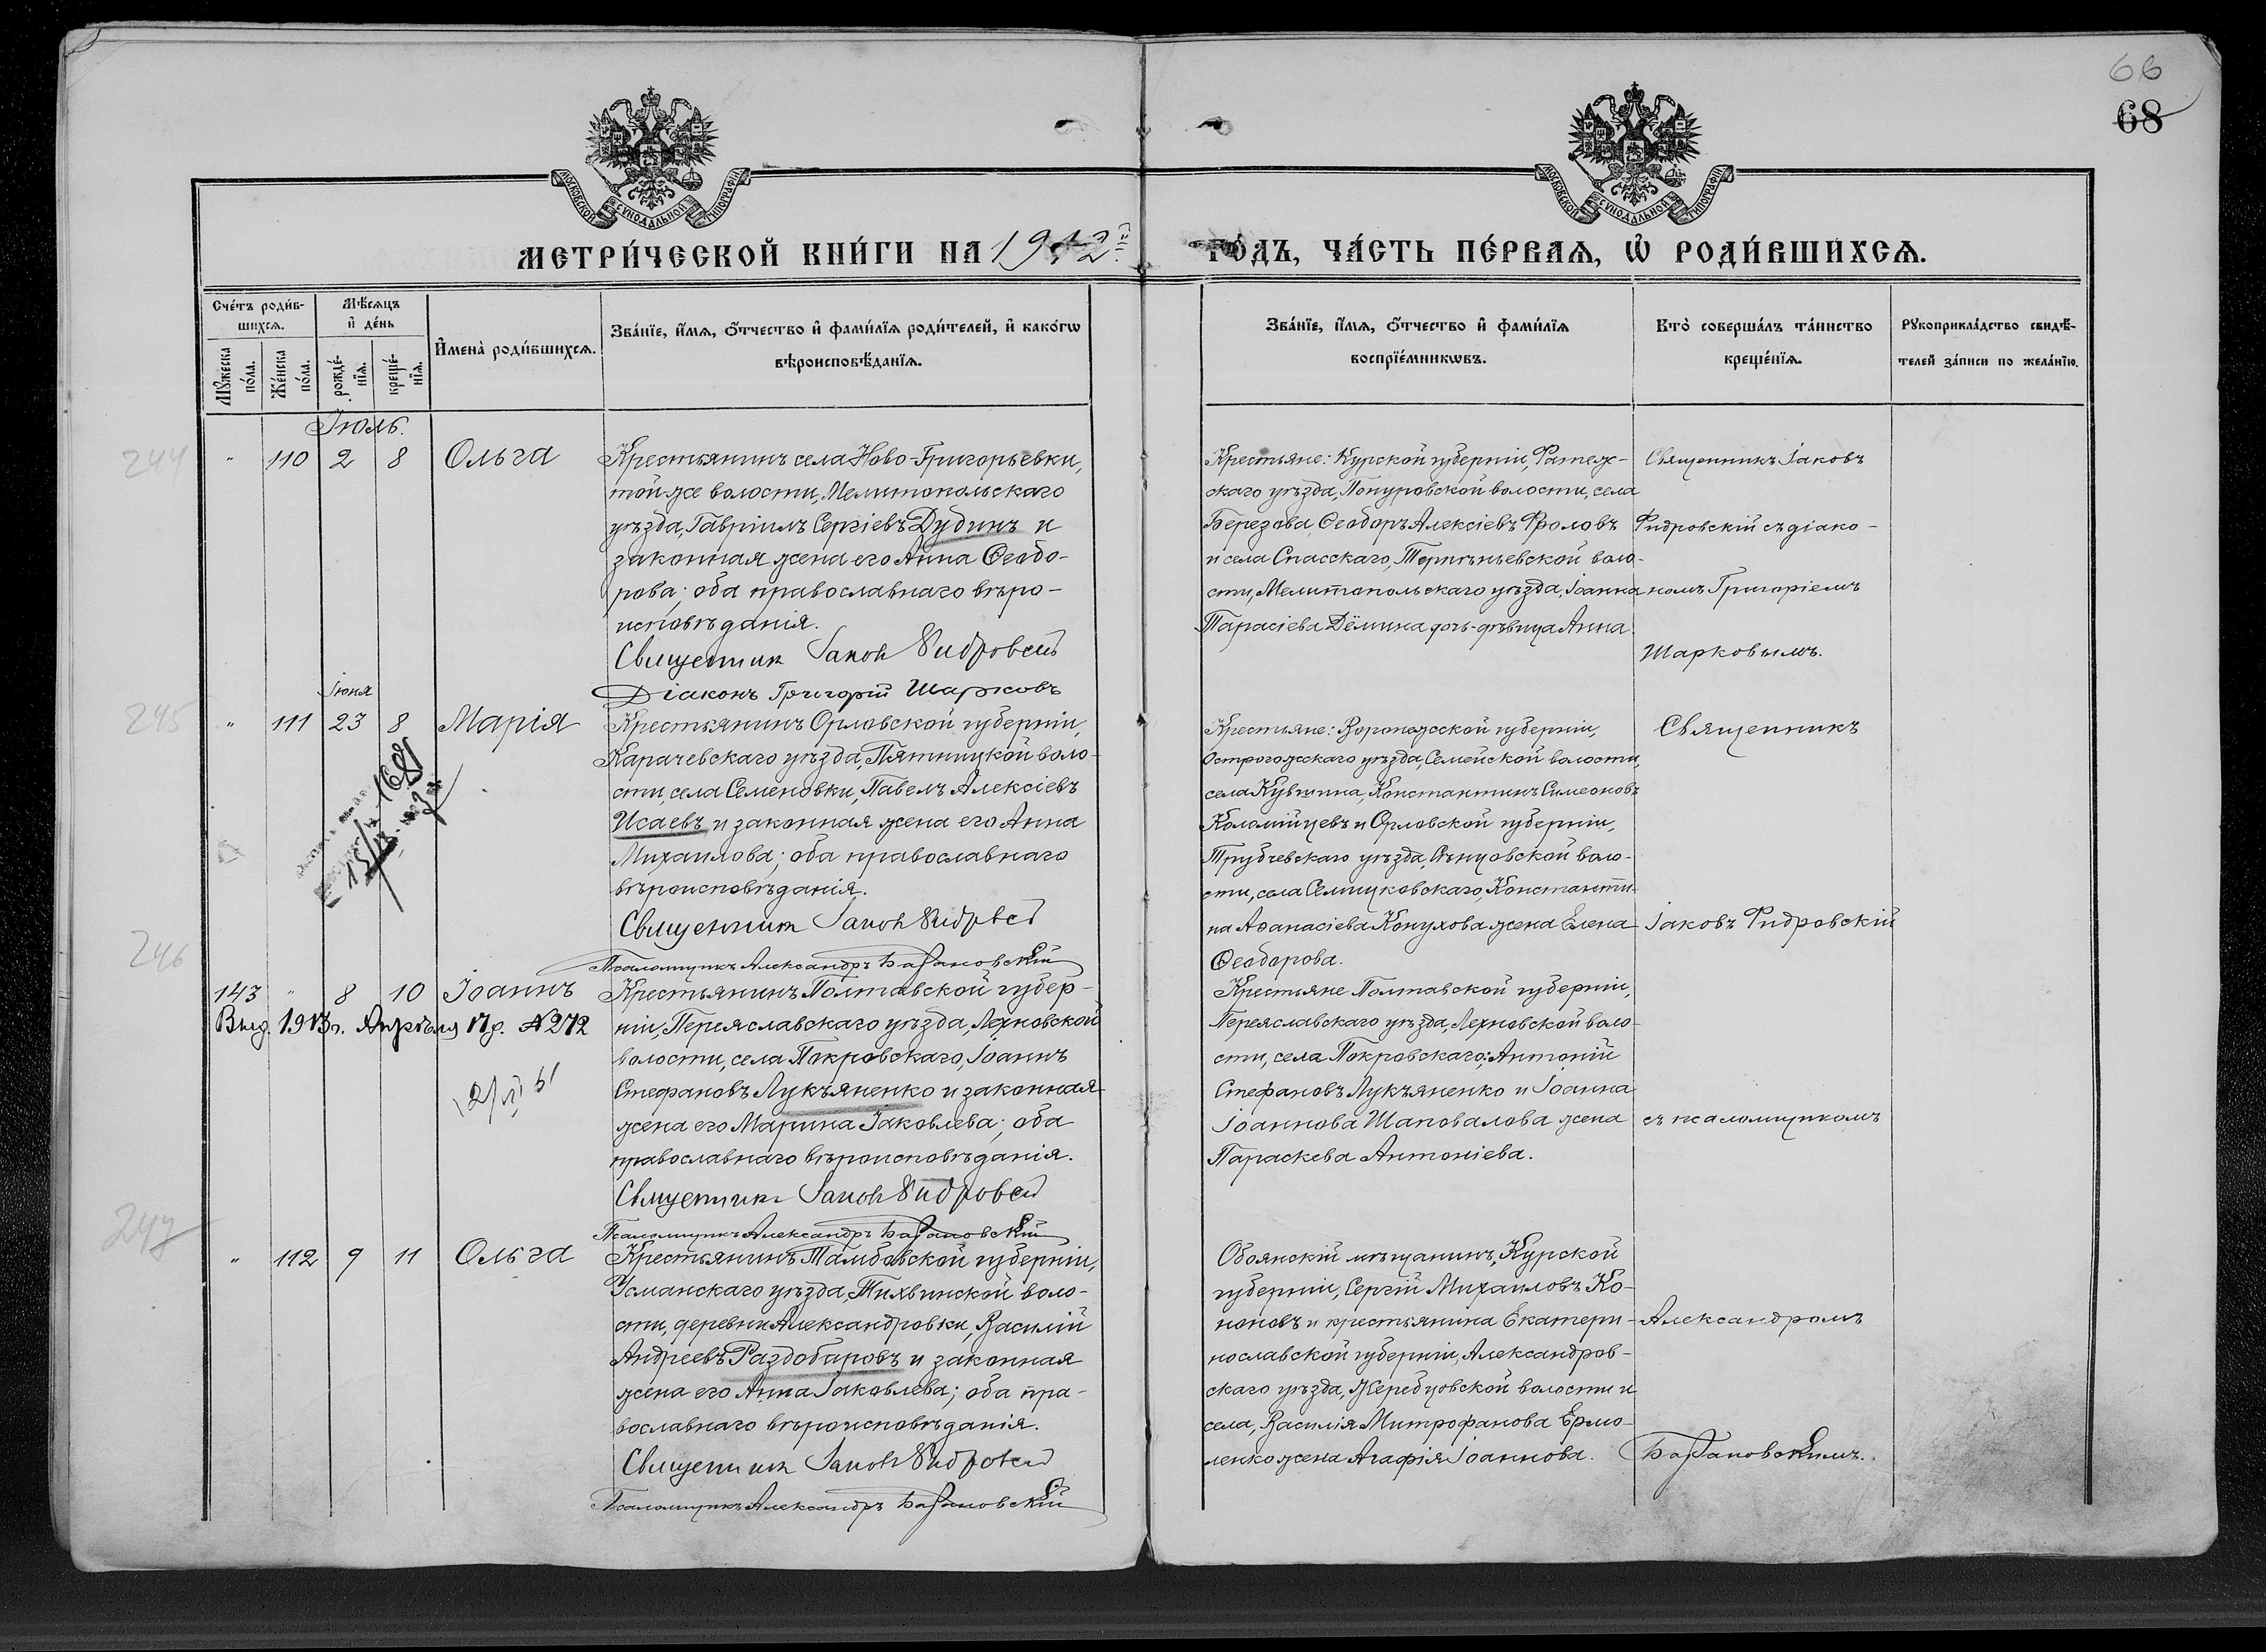 66
68
МОСКОВСКОЙ СѴНОДАЛЬНОЙ ТИПОГРАФІИ
МОСКОВСКОЙ СѴНОДАЛЬНОЙ ТИПОГРАФІИ
МЕТРИ́ЧЕСКОЙ КНИ́ГИ НА 1912й ГО́ДЪ, ЧА́СТЬ ПЕ́РВАѦ, Ѡ҆ РОДИ́ВШИХСѦ.
Сче́тъ роди́в-
шихсѧ.
Мꙋ́жеска
по́ла.
Же́нска
по́ла.
Мѣ́сѧцъ
и҆ де́нь
рожде́-
нїѧ.
креще́-
нїѧ.
И҆мена̀ роди́вшихсѧ.
Зва́нїе, и҆́мѧ, ѻ҆́тчество и҆ фами́лїѧ роди́телей, и҆ како́гѡ
вѣроисповѣ́данїѧ.
Зва́нїе, и҆́мѧ, ѻ҆́тчество и҆ фами́лїѧ
воспрїе́мникѡвъ.
Кто̀ соверша́лъ та́инство
креще́нїѧ.
Рꙋкоприкла́дство свидѣ́-
телей за́писи по жела́нїю.
Іюль.
244
" 110 2 8 Ольга
Крестьянинъ села Ново-Григорьевки,
той же волости, Мелитопольскаго
уѣзда, Гавріилъ Сергіевъ Дудинъ и
законная жена его Анна Ѳеодо-
рова; оба православнаго вѣро-
исповѣданія.
Священник Іаков Фидровский
Діаконъ Григорій Шарковъ
Крестьяне: Курской губерніи, Фатеж-
скаго уѣзда, волости, села
Березова, Ѳеодоръ Алексіевъ Фроловъ
и села Спасскаго, Терпѣньевской воло-
сти, Мелитопольскаго уѣзда, Іоанна
Тарасіева Дёмина дочь-дѣвица Анна.
Священникъ Іаковъ
Фидровскій съ діако-
номъ Григоріемъ
Шарковымъ.
245
Іюня
" 111 23 8 Марія
Крестьянинъ Орловской губерніи,
Карачевскаго уѣзда, Пятницкой воло-
сти, села Семеновки, Павелъ Алексіевъ
Исаевъ и законная жена его Анна
Михаилова; оба православнаго
вѣроисповѣданія.
Священник Іаков Фидровский
Псаломщикъ Александръ Барановскій
Крестьяне: Воронежской губерніи,
Острогожскаго уѣзда, Семейской волости,
села Кувшина, Константинъ Симеоновъ
Коломійцевъ и Орловской губерніи,
Трубчевскаго уѣзда, воло-
сти, села Селицковскаго, Константи-
на Аѳанасіева Конухова жена Елена
Ѳеодорова.
Священникъ
Іаковъ Фидровскій
246
143 " 8 10 Іоаннъ
Выд. 1913 г. Апрѣля 17 д. № 272
Крестьянинъ Полтавской губер-
ніи, Переяславскаго уѣзда, Лехновской
волости, села Покровскаго, Іоаннъ
Стефановъ Лукъяненко и законная
жена его Марина Іаковлева; оба
православнаго вѣроисповѣданія.
Священник Іаков Фидровский
Псаломщикъ Александръ Барановскій
Крестьяне Полтавской губерніи,
Переяславскаго уѣзда, Лехновской воло-
сти, села Покровскаго: Антоній
Стефановъ Лукъяненко и Іоанна
Іоаннова Шаповалова жена
Параскева Антоніева.
съ псаломщикомъ
247
" 112 9 11 Ольга
Крестьянинъ Тамбовской губерніи,
Усманскаго уѣзда, Тихвинской воло-
сти, деревни Александровки, Василій
Андреевъ Раздобаровъ и законная
жена его Анна Іаковлева; оба пра-
вославнаго вѣроисповѣданія.
Священник Іаков Фидровский
Псаломщикъ Александръ Барановскій
Обоянскій мѣщанинъ, Курской
губерніи, Сергій Михаиловъ Ко-
ноновъ и крестьянина Екатери-
нославской губерніи, Александров-
скаго уѣзда, Жеребцовской волости и
села, Василія Митрофанова Ермо-
ленко жена Агафія Іоаннова.
Александромъ
Барановскимъ.